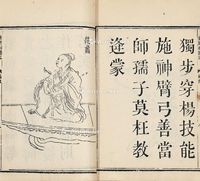 獨步穿楊技能
施神臂弓善當
師孺子莫枉教
逢蒙